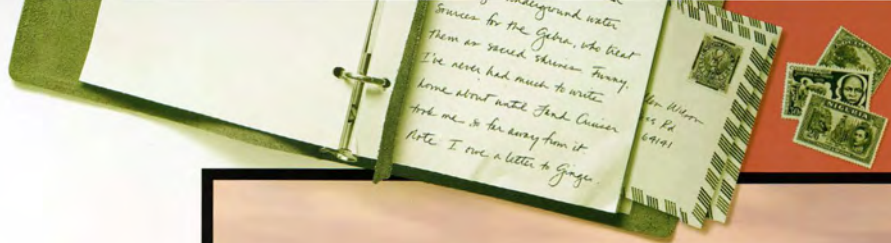 underground water
sources for the Gabra, who treat
them as sacred shrines. Funny,
I've never had much to write
home about until Land Cruiser
took me so far away from it
Note: I owe a letter to Ginger.
Wilson
Rd
64141
NIGERIA